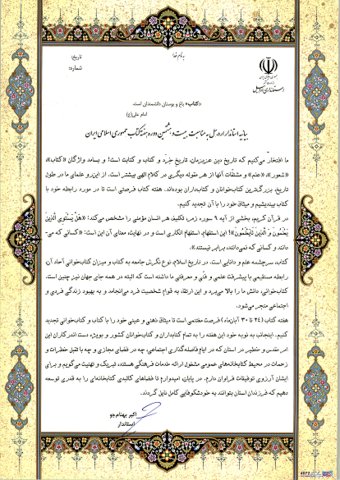 بنام خدا
تاریخ:
شماره:
«کتاب» باغ و بوستان دانشمندان است.
امام علی(ع)
بیانیه استاندار اردبیل به مناسبت بیست و هشتمین دوره هفته کتاب جمهوری اسلامی ایران
ما افتخار می‌کنیم که تاریخ دین عزیزمان، تاریخ خِرَد و کتاب و کتابت است؛ و بسامد واژگان «کتاب»،
«شعور»، «علم» و مشتقات آنها از هر مقوله دیگری در کلام الهی بیشتر است. از این‌رو علمای ما در طول
تاریخ، بزرگ‌ترین کتاب‌خوانان و کتاب‌داران بوده‌اند. هفته کتاب فرصتی است تا در مورد رابطه خود با
کتاب بیندیشیم و میثاق خود را با آن تجدید کنیم.
در قرآن کریم، بخشی از آیه ۹ سوره زمر، تکلیف هر انسان مؤمنی را مشخص می‌کند: «هَلْ يَسْتَوِي الَّذِينَ
يَعْلَمُونَ وَ الَّذِينَ لَايَعْلَمُونَ»؛ این استفهام، استفهام انکاری است و در نهایت، معنای آن این است: «کسانی که می‌-
دانند و کسانی که نمی‌دانند، برابر نیستند.»
کتاب، سرچشمه علم و دانایی است. در تاریخ اسلام، نوع نگرش جامعه به کتاب و میزان کتاب‌خوانی آحاد آن،
رابطه مستقیمی با پیشرفت علمی و فنّی و معرفتی ما داشته است که البته در همه جای جهان نیز چنین است.
کتاب‌خوانی، دانش ما را بالا می‌برد و این ارتقاء به قوام شخصیت فرد می‌انجامد و به بهبود زندگی فردی و
اجتماعی منجر می‌شود.
هفته کتاب (۲۴ تا ۳۰ آبان‌ماه) فرصت مغتنمی است تا میثاق ذهنی و عینی خود را با کتاب و کتاب‌خوانی تجدید
کنیم. اینجانب به نوبه خود این هفته را به تمام کتابداران و کتاب‌خوانان کشور و بویژه دست اندرکاران این
امر مقدس و خطیر در استان که در ایام فاصله‌گذاری اجتماعی، چه در فضای مجازی و چه با تقبل خطرات و
زحمات در محیط کتابخانه‌های عمومی مشغول ارائه خدمات فرهنگی هستند، تبریک و تهنیت می‌گویم و برای
ایشان آرزوی توفیقات فراوان دارم. در پایان، امیدوارم تا فضاهای کالبدی کتابخانه‌ای را به قدری توسعه
دهیم که فرزندان استان بتوانند به خودشکوفایی کامل نایل گردند.
اکبر بهنام‌جو
استاندار